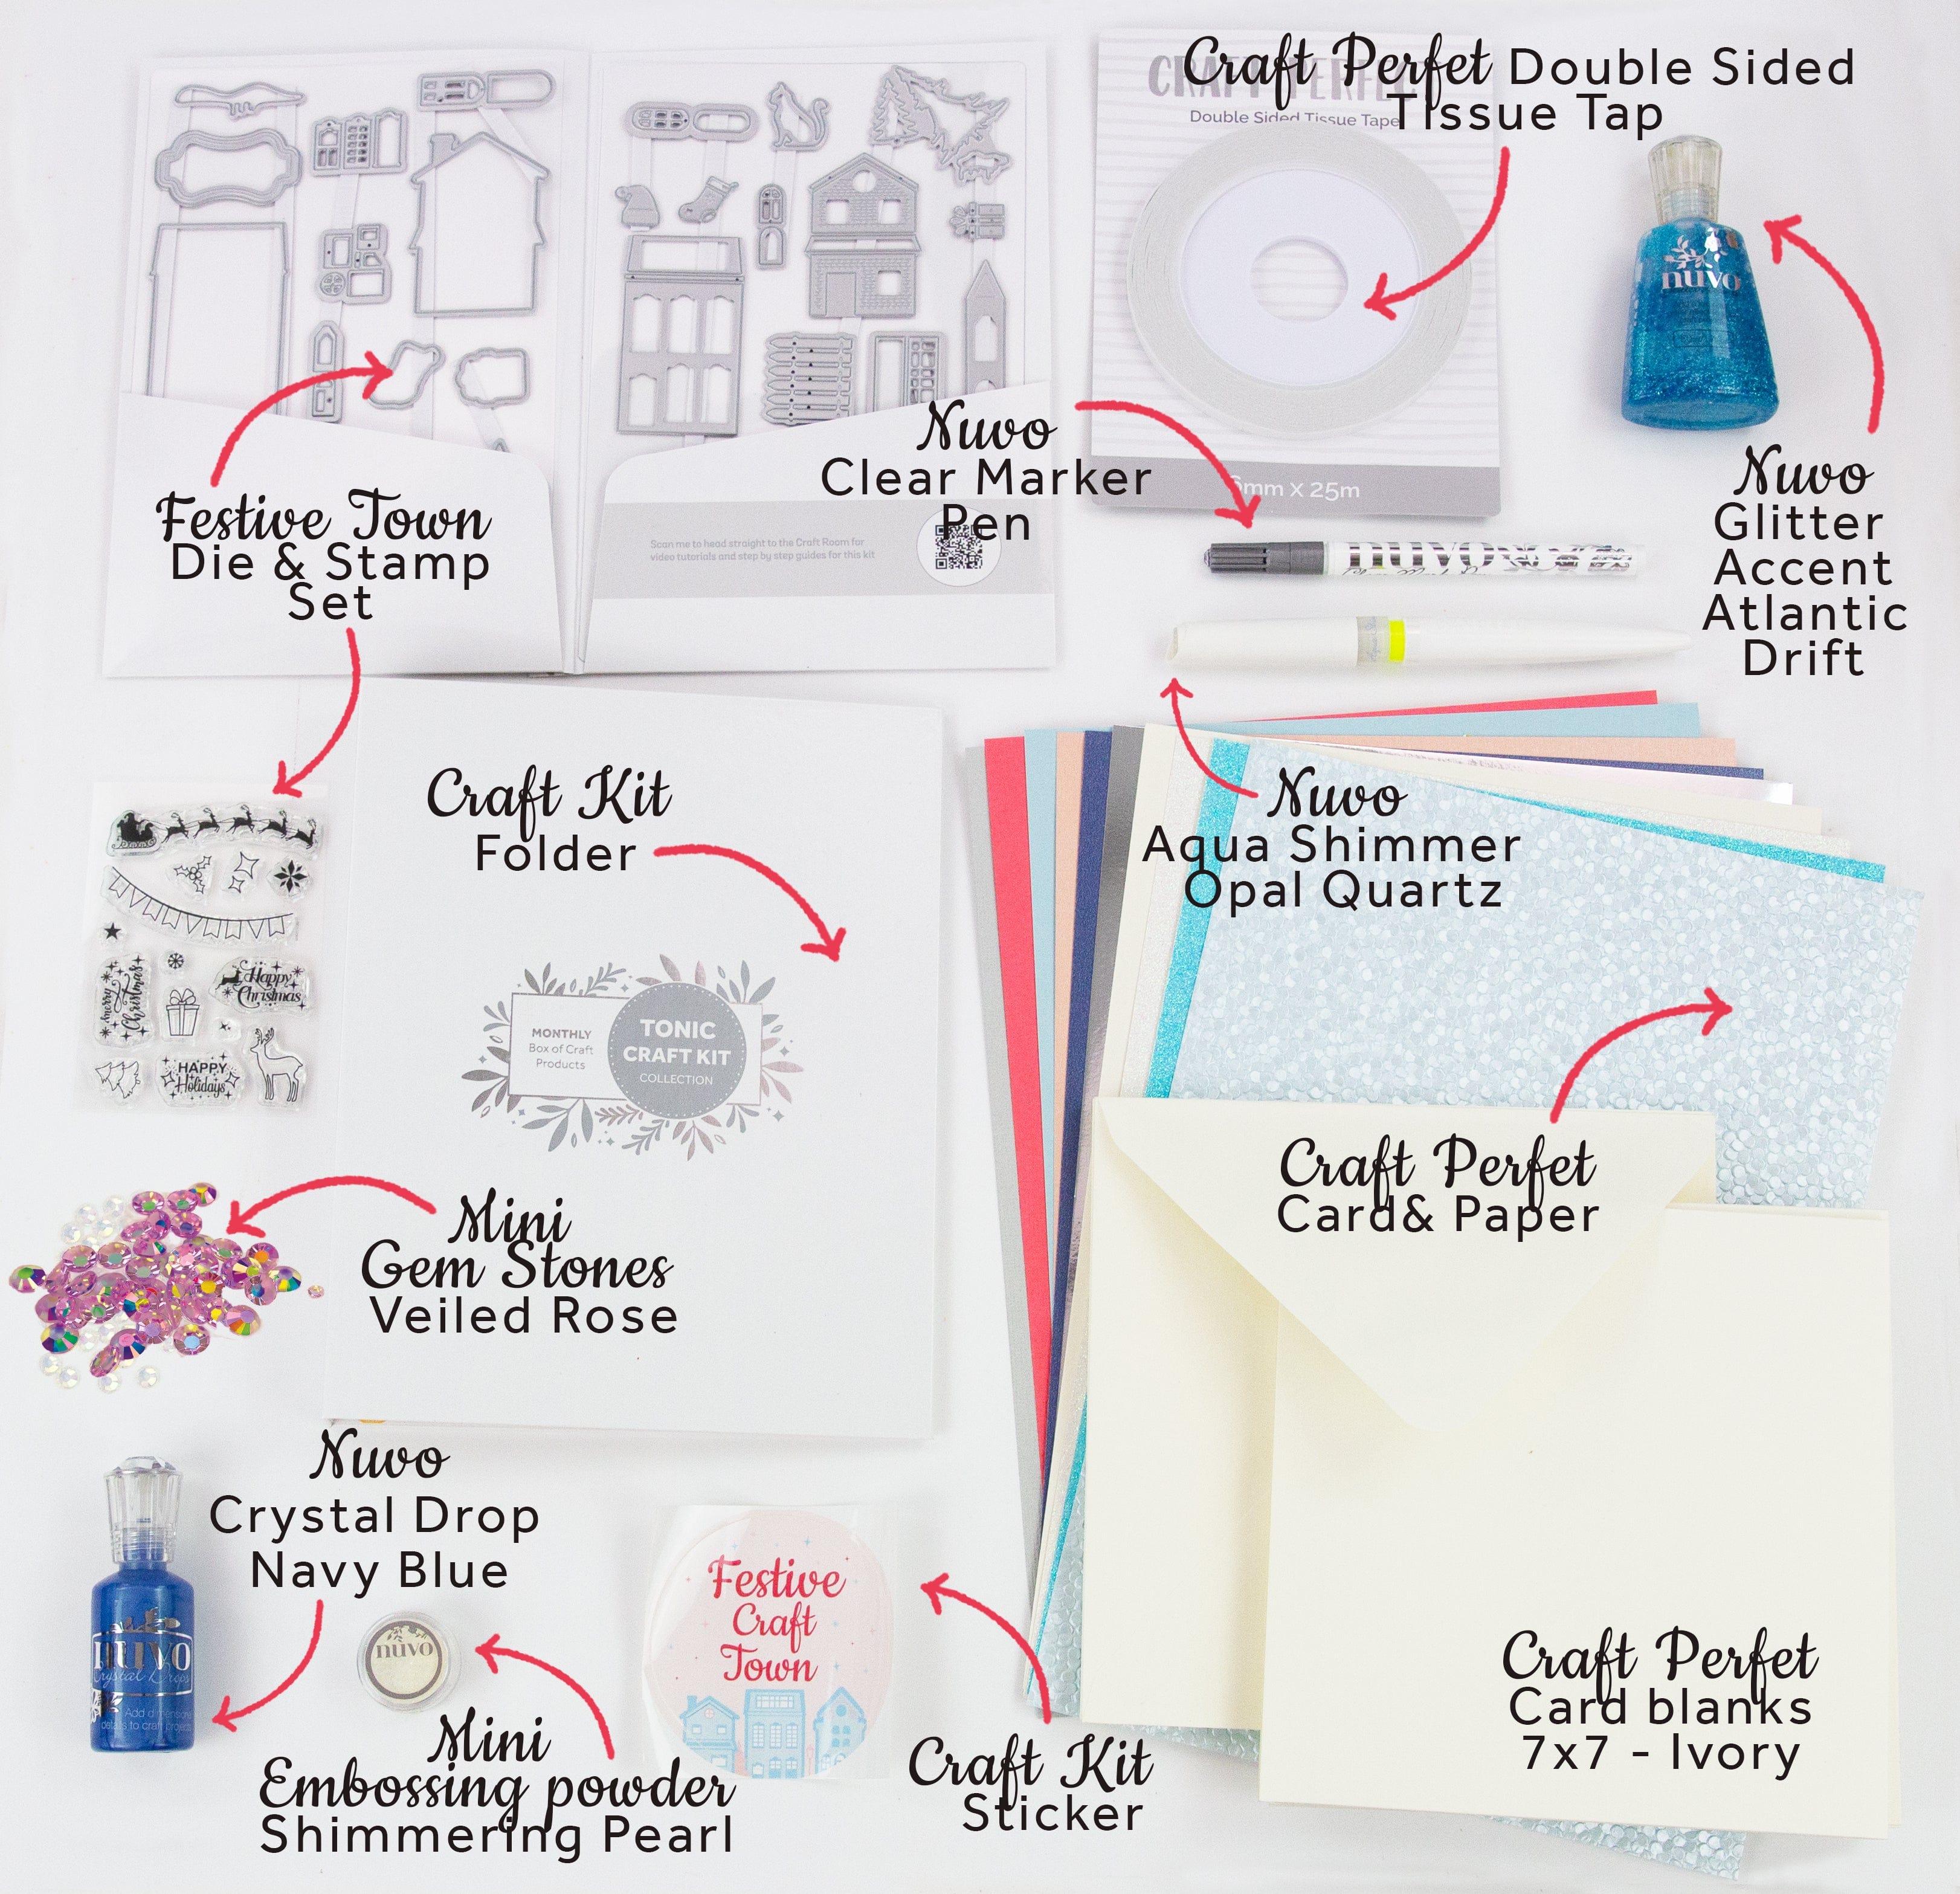 CRAFT PERFECT
Double Sided Tissue Tape
6mm x 25m
Craft Perfet Double Sided
Tissue Tap
nuvo
Nuvo
Glitter
Accent
Atlantic
Drift
Nuvo
Clear Marker
Pen
nuvo
Scan me to head straight to the Craft Room for
video tutorials and step by step guides for this kit
Festive Town
Die & Stamp
Set
Craft Kit
Folder
Nuvo
Aqua Shimmer
Opal Quartz
Merry
Christmas
Happy
Christmas
HAPPY
Holidays
MONTHLY
Box of Craft
Products
TONIC
CRAFT KIT
COLLECTION
Craft Perfet
Card& Paper
Mini
Gem Stones
Veiled Rose
Nuvo
Crystal Drop
Navy Blue
nuvo
Crystal Drops
Add dimensional
details to craft projects
nuvo
Mini
Embossing powder
Shimmering Pearl
Festive
Craft
Town
Craft Kit
Sticker
Craft Perfet
Card blanks
7x7 - Ivory